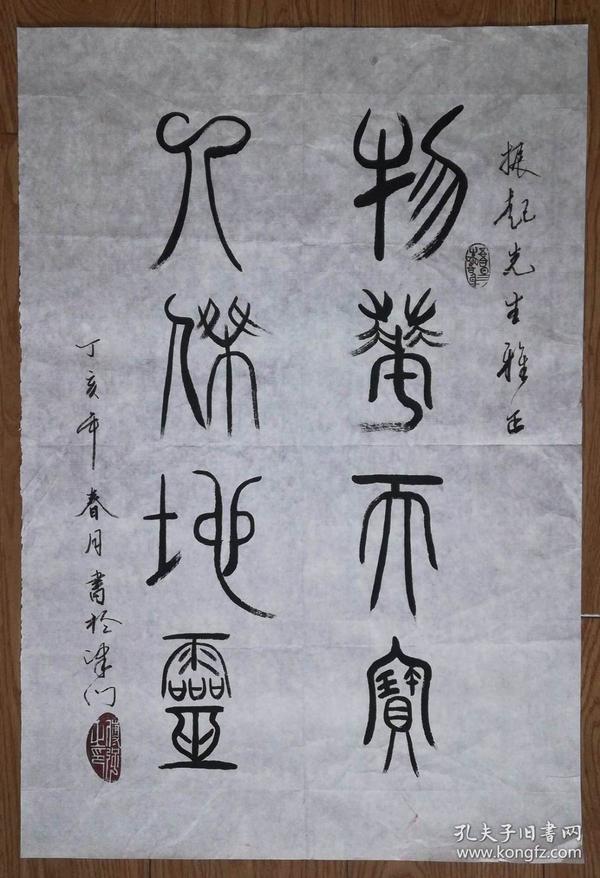 振起先生雅正
物華天寶
人傑地靈
丁亥年春月書於津門
孔夫子旧書网
www.kongfz.com